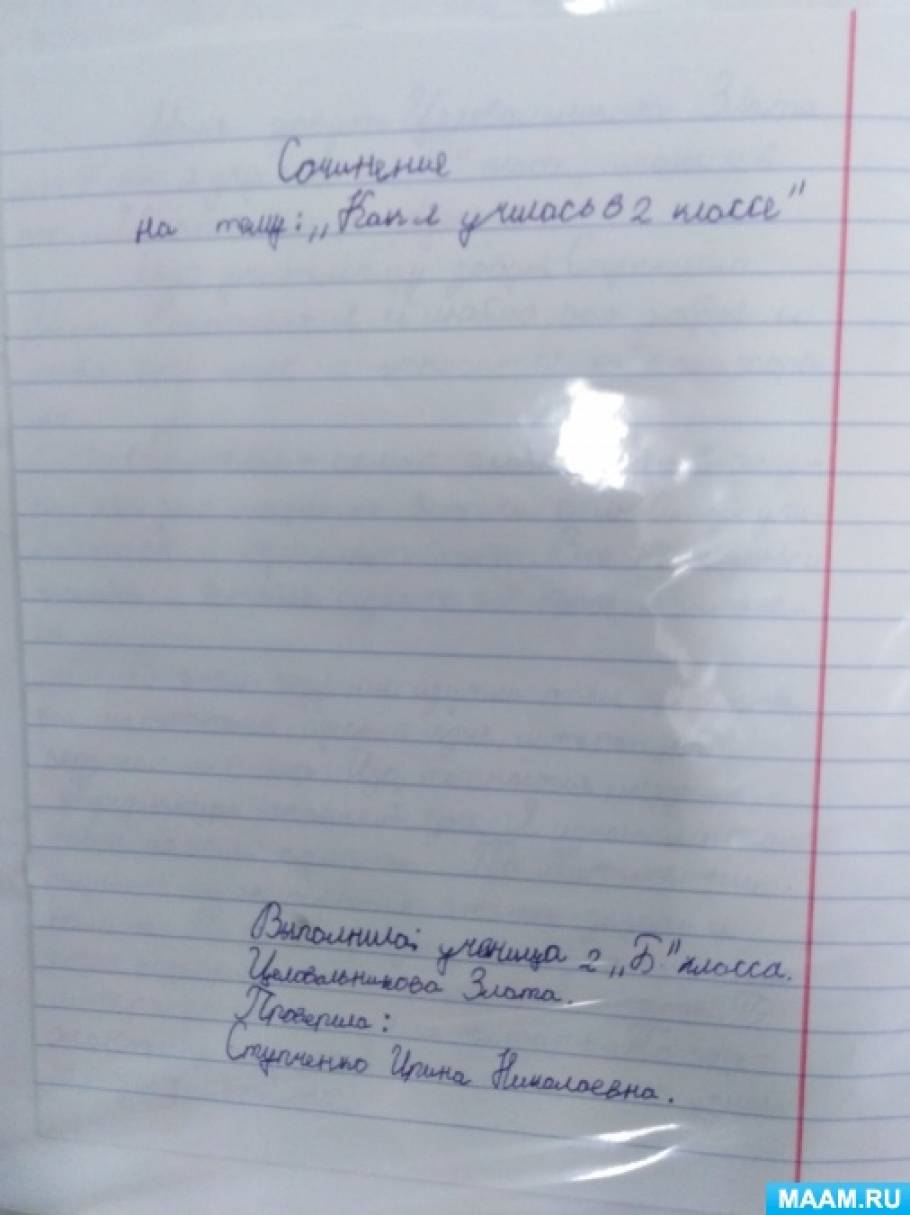 Сочинение
на тему: „Как я училась в 2 классе"
Выполнила: ученица 2 „Б" класса.
Целовальникова Злата.
Проверила:
Ступченко Ирина Николаевна.
MAAM.RU